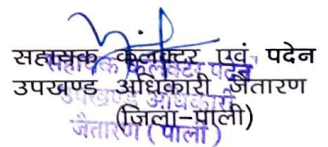 सहायक कलेक्टर एवं पदेन
उपखण्ड अधिकारी जैतारण
(जिला-पाली)
सहायक कलेक्टर पदेन
उपखण्ड अधिकारी
जैतारण (पाली)